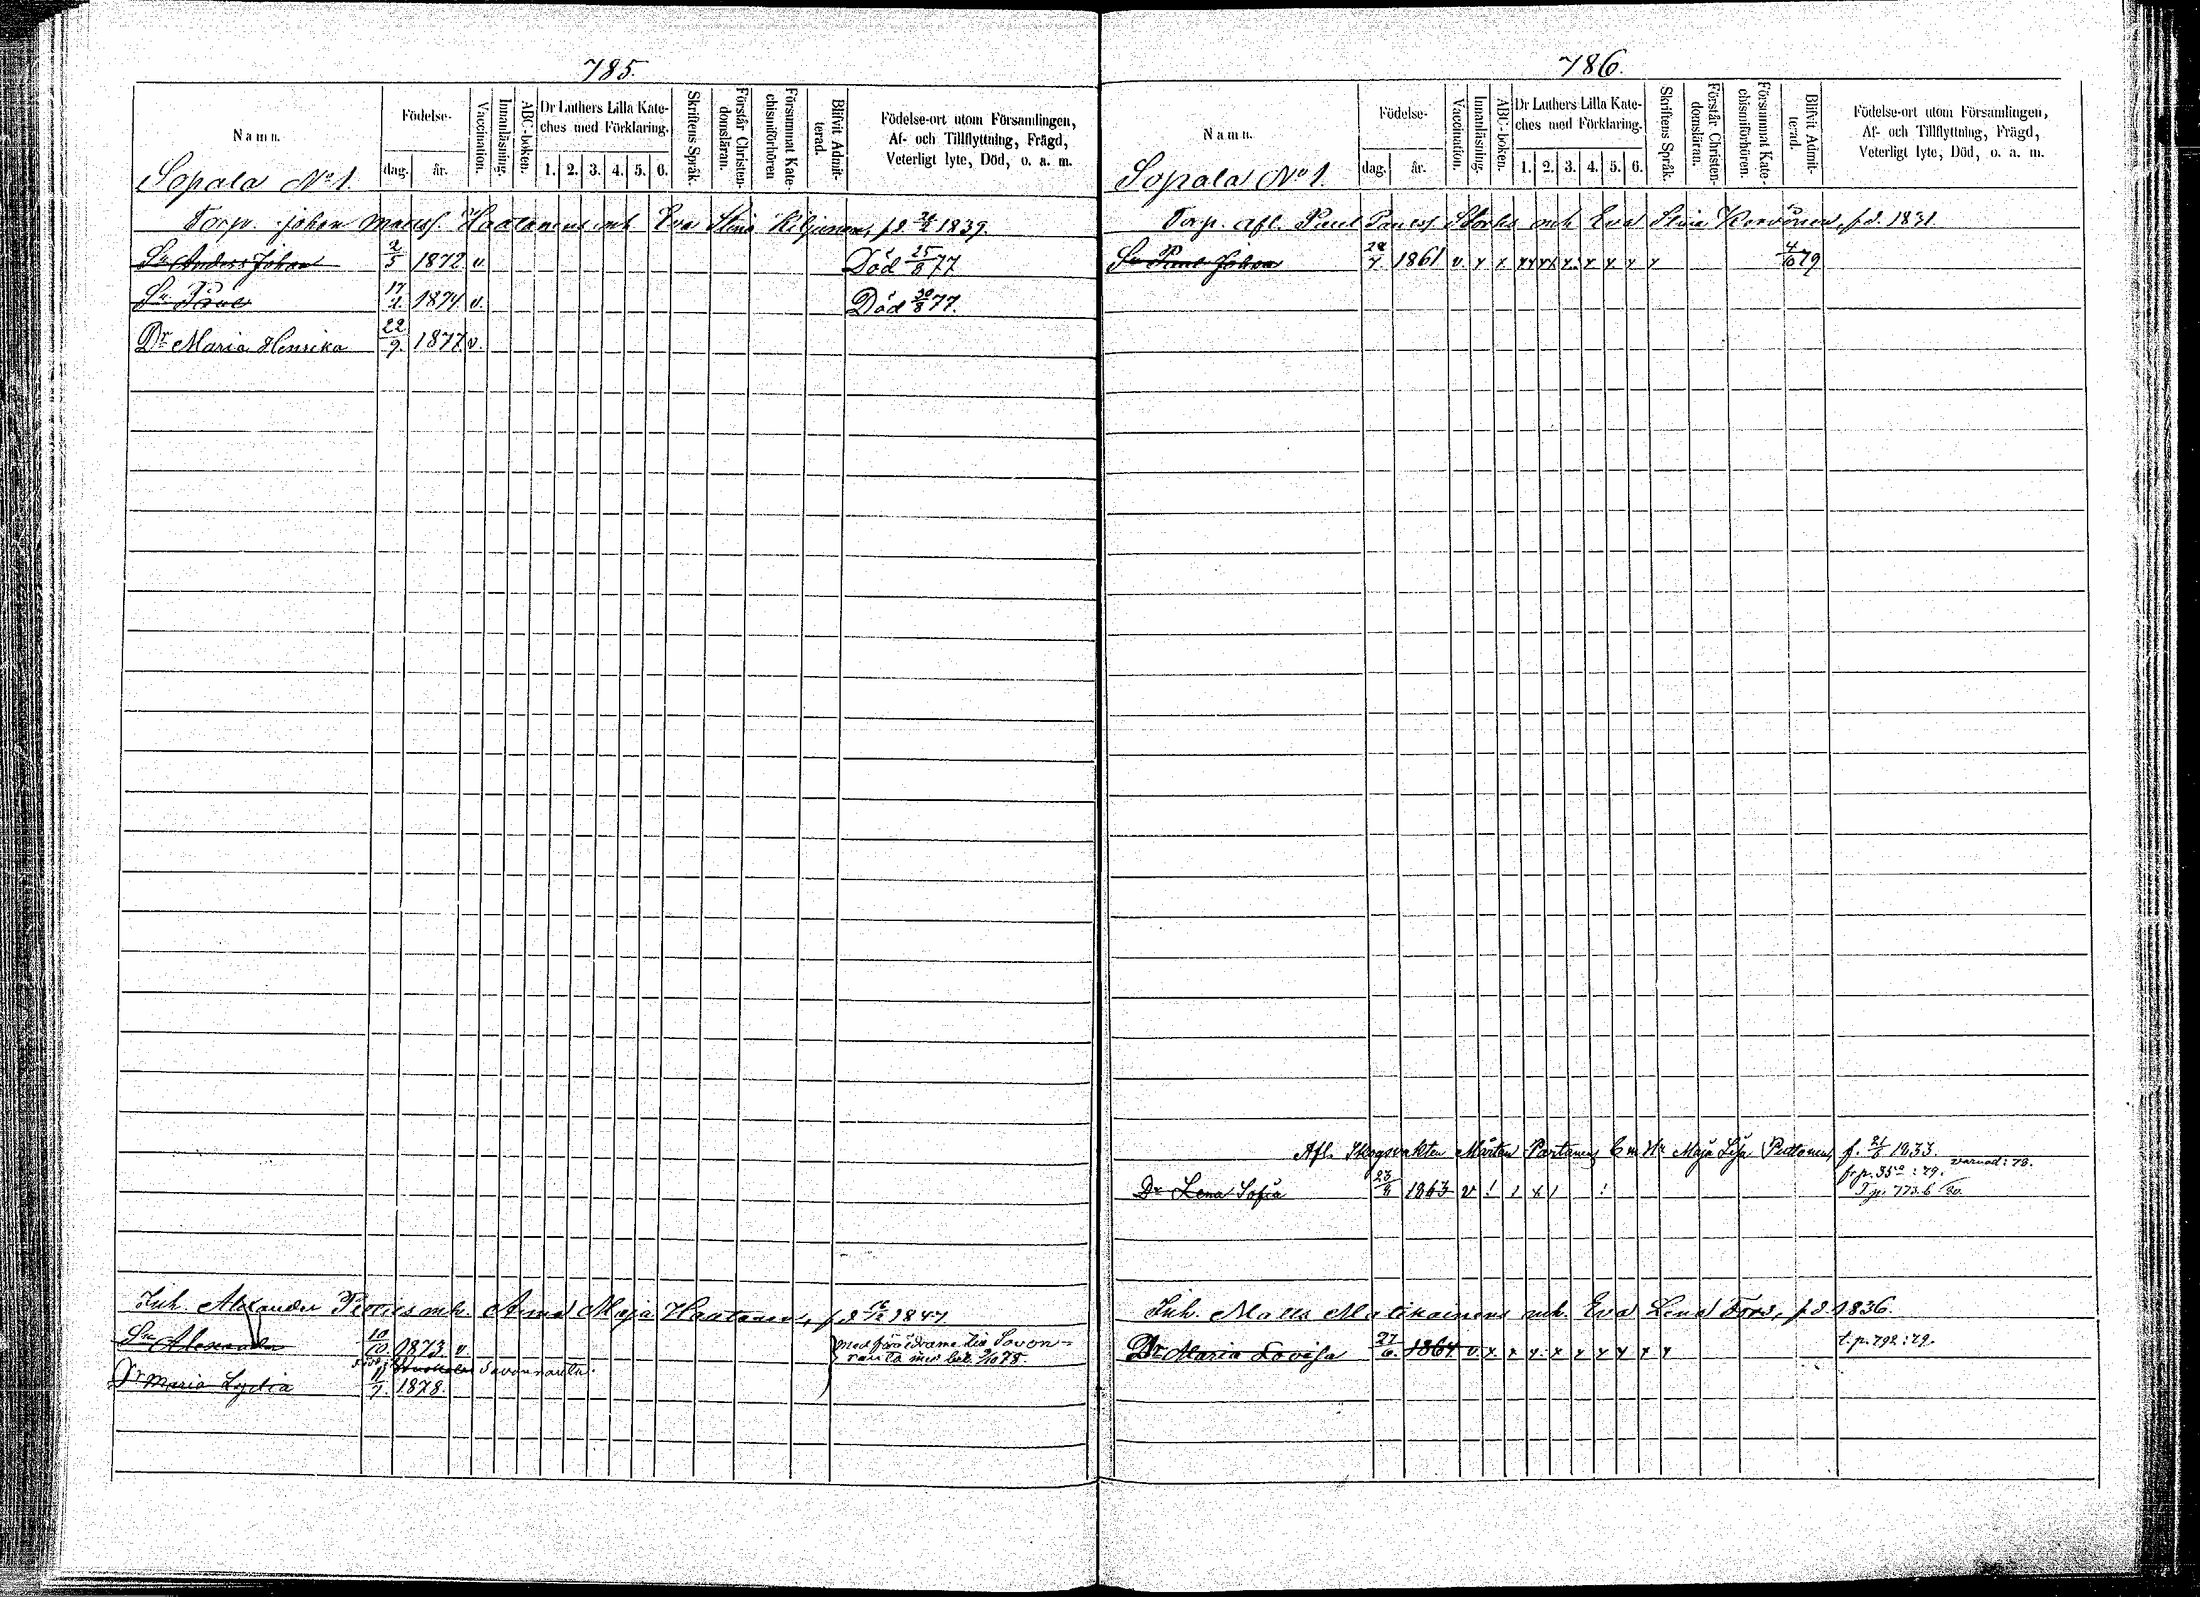 785.
Namn.
Födelse-
dag.
år.
Vaccination.
Innanläsning.
ABC-boken.
Dr Luthers Lilla Kate-
ches med Förklaring.
1. 2. 3. 4. 5. 6.
Skriftens Språk.
Förstår Christen-
domsläran.
Försummat Kate-
chismiförhören
Blifvit Admit-
terad.
Födelse-ort utom Församlingen,
Af- och Tillflyttning, Frägd,
Veterligt lyte, Död, o. a. m.
Sopala No 1.
Torp. Johan Matts. Haatanens mh Eva Stina Kiljunen, f.d. 1839.
Sn Anders Johan 2/5 1872 v Död 25/8 77
Sn Paul 17/2. 1874 v. Död 30/8 77.
Dr Maria Henrika 22/9. 1877 v.
Inh. Alexander mh. Anna Maja Haatanen, f.d. 1847
Sn Alexander 10/10. 1873 v. med föräldrarne till Savon-
ranta med bet. 78.
Savonranta.
Dr Maria Lydia 11/7. 1878.
786.
Namn.
Födelse-
dag.
år.
Vaccination.
Innanläsning.
ABC-boken.
Dr Luthers Lilla Kate-
ches med Förklaring.
1. 2. 3. 4. 5. 6.
Skriftens Språk.
Förstår Christen-
domsläran.
Försummat Kate-
chismiförhören.
Blifvit Admit-
terad.
Födelse-ort utom Församlingen,
Af- och Tillflyttning, Frägd,
Veterligt lyte, Död, o. a. m.
Sopala No 1.
Torp. afl. Paul Paulss. Storks mh Eva Stina Kervönen, f.d. 1831.
Sn Paul Johan 28/7. 1861 v. x x xx xx x. x x x x 4/10 79
Afl. Skogsvakten Mårten Partanens Enk. Maja Lisa Puttonen, f. 21/6 1833.
Dr Lena Sofia 23/8 1863 v ! 1 x 1 : fr p. 350 : 79. varnad : 78.
T p. 773.b /80.
Inh. Matts Matikainens mh. Eva Lena Fors, f.d. 1836.
Dr Maria Lovisa 27/6. 1864 v. x x x. x x x x x x t. p. 792 : 79.